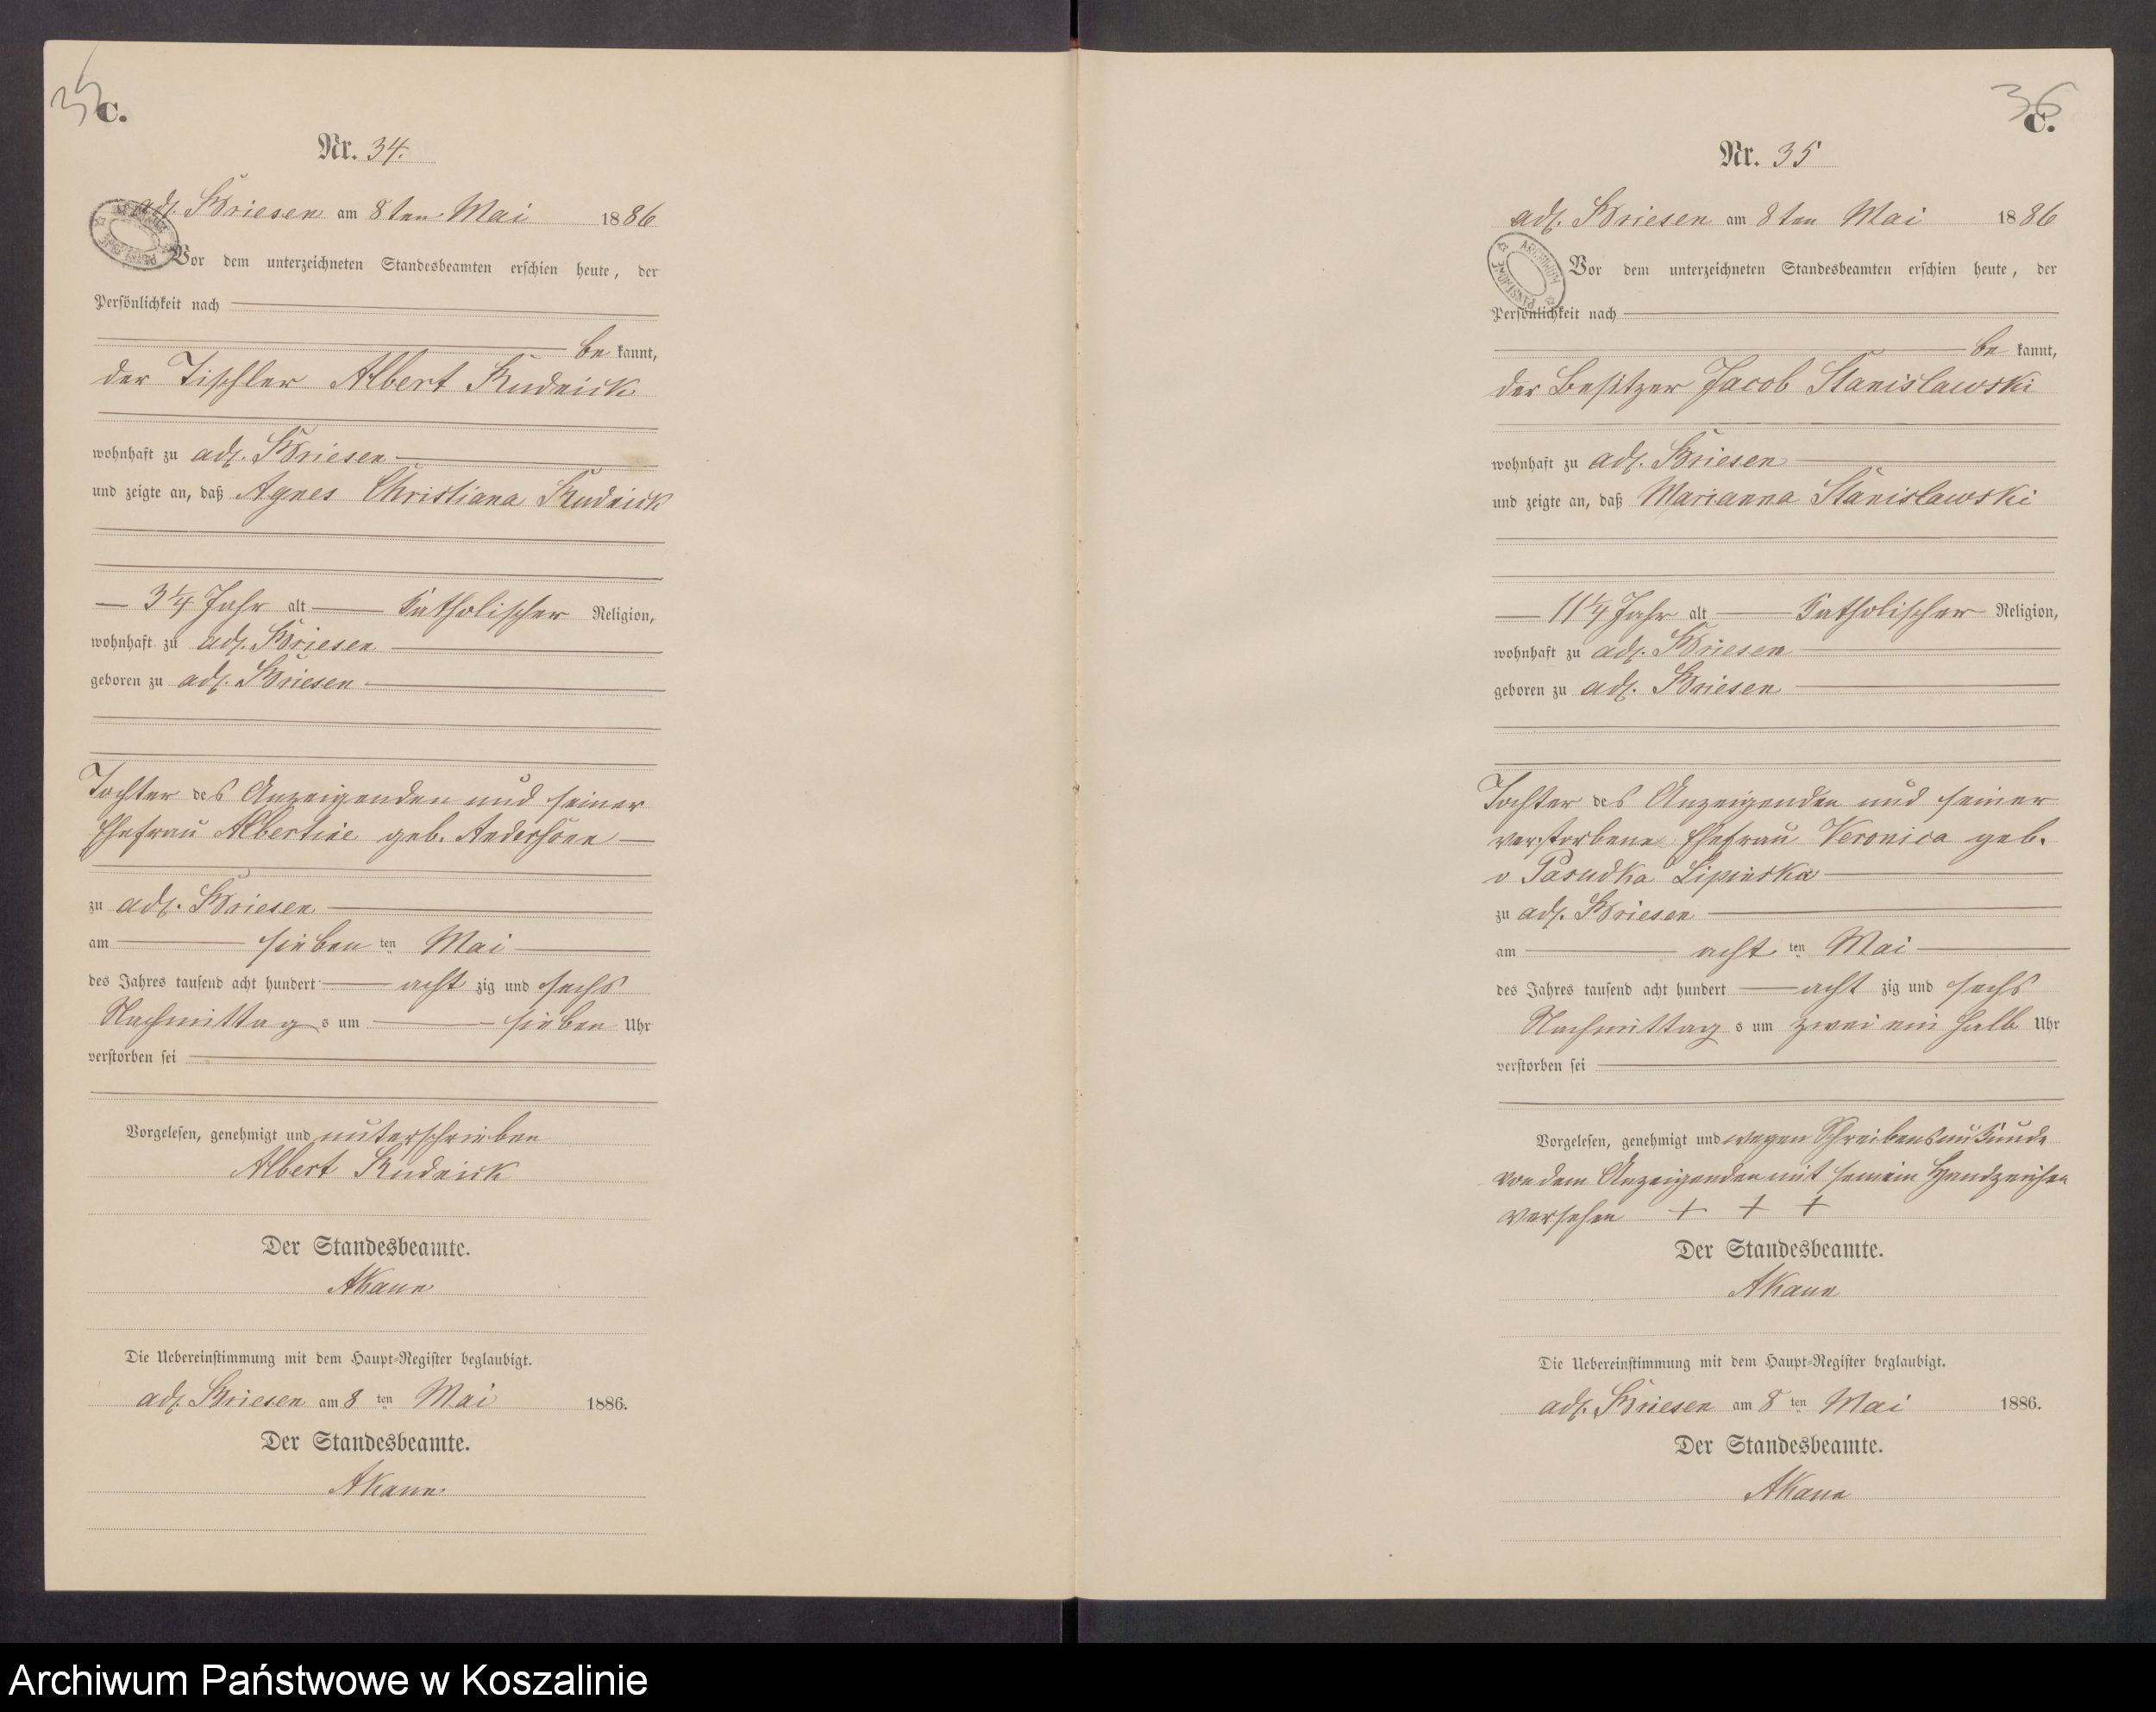 35
C.
Nr. 34.
adl. Briesen am 8ten Mai 1886
Vor dem unterzeichneten Standesbeamten erschien heute, der
Persönlichkeit nach
be kannt,
der Tischler Albert Rudnick
wohnhaft zu adl. Briesen
und zeigte an, daß Agnes Christiana Rudnick
3 1/4 Jahr alt Katholischer Religion,
wohnhaft zu adl. Briesen
geboren zu adl. Briesen
Tochter des Anzeigenden und seiner
Ehefrau Albertine geb. Andersonn
zu adl. Briesen
am sieben ten Mai
des Jahres tausend acht hundert acht zig und sechs
Nachmittag s um sieben Uhr
verstorben sei
Vorgelesen, genehmigt und unterschrieben
Albert Rudnick
Der Standesbeamte.
Die Uebereinstimmung mit dem Haupt-Register beglaubigt.
adl. Briesen am 8 ten Mai 1886.
Der Standesbeamte.
36
C.
Nr. 35
adl. Briesen am 8ten Mai 1886
ARCHIWUM PAŃSTWOWE
Vor dem unterzeichneten Standesbeamten erschien heute, der
Persönlichkeit nach
be kannt,
der Besitzer Jacob Stanislawski
wohnhaft zu adl. Briesen
und zeigte an, daß Marianna Stanislawski
11 1/4 Jahr alt Katholischer Religion,
wohnhaft zu adl. Briesen
geboren zu adl. Briesen
Tochter des Anzeigenden und seiner
verstorbene Ehefrau Veronica geb.
v Lipinska
zu adl. Briesen
am acht ten Mai
des Jahres tausend acht hundert acht zig und sechs
Nachmittag s um zwei ein halb Uhr
verstorben sei
Vorgelesen, genehmigt und wegen Schreibensunkunde
von dem Anzeigenden mit seinem Handzeichen
versehen + + +
Der Standesbeamte.
Die Uebereinstimmung mit dem Haupt-Register beglaubigt.
adl. Briesen am 8 ten Mai 1886.
Der Standesbeamte.
Archiwum Państwowe w Koszalinie